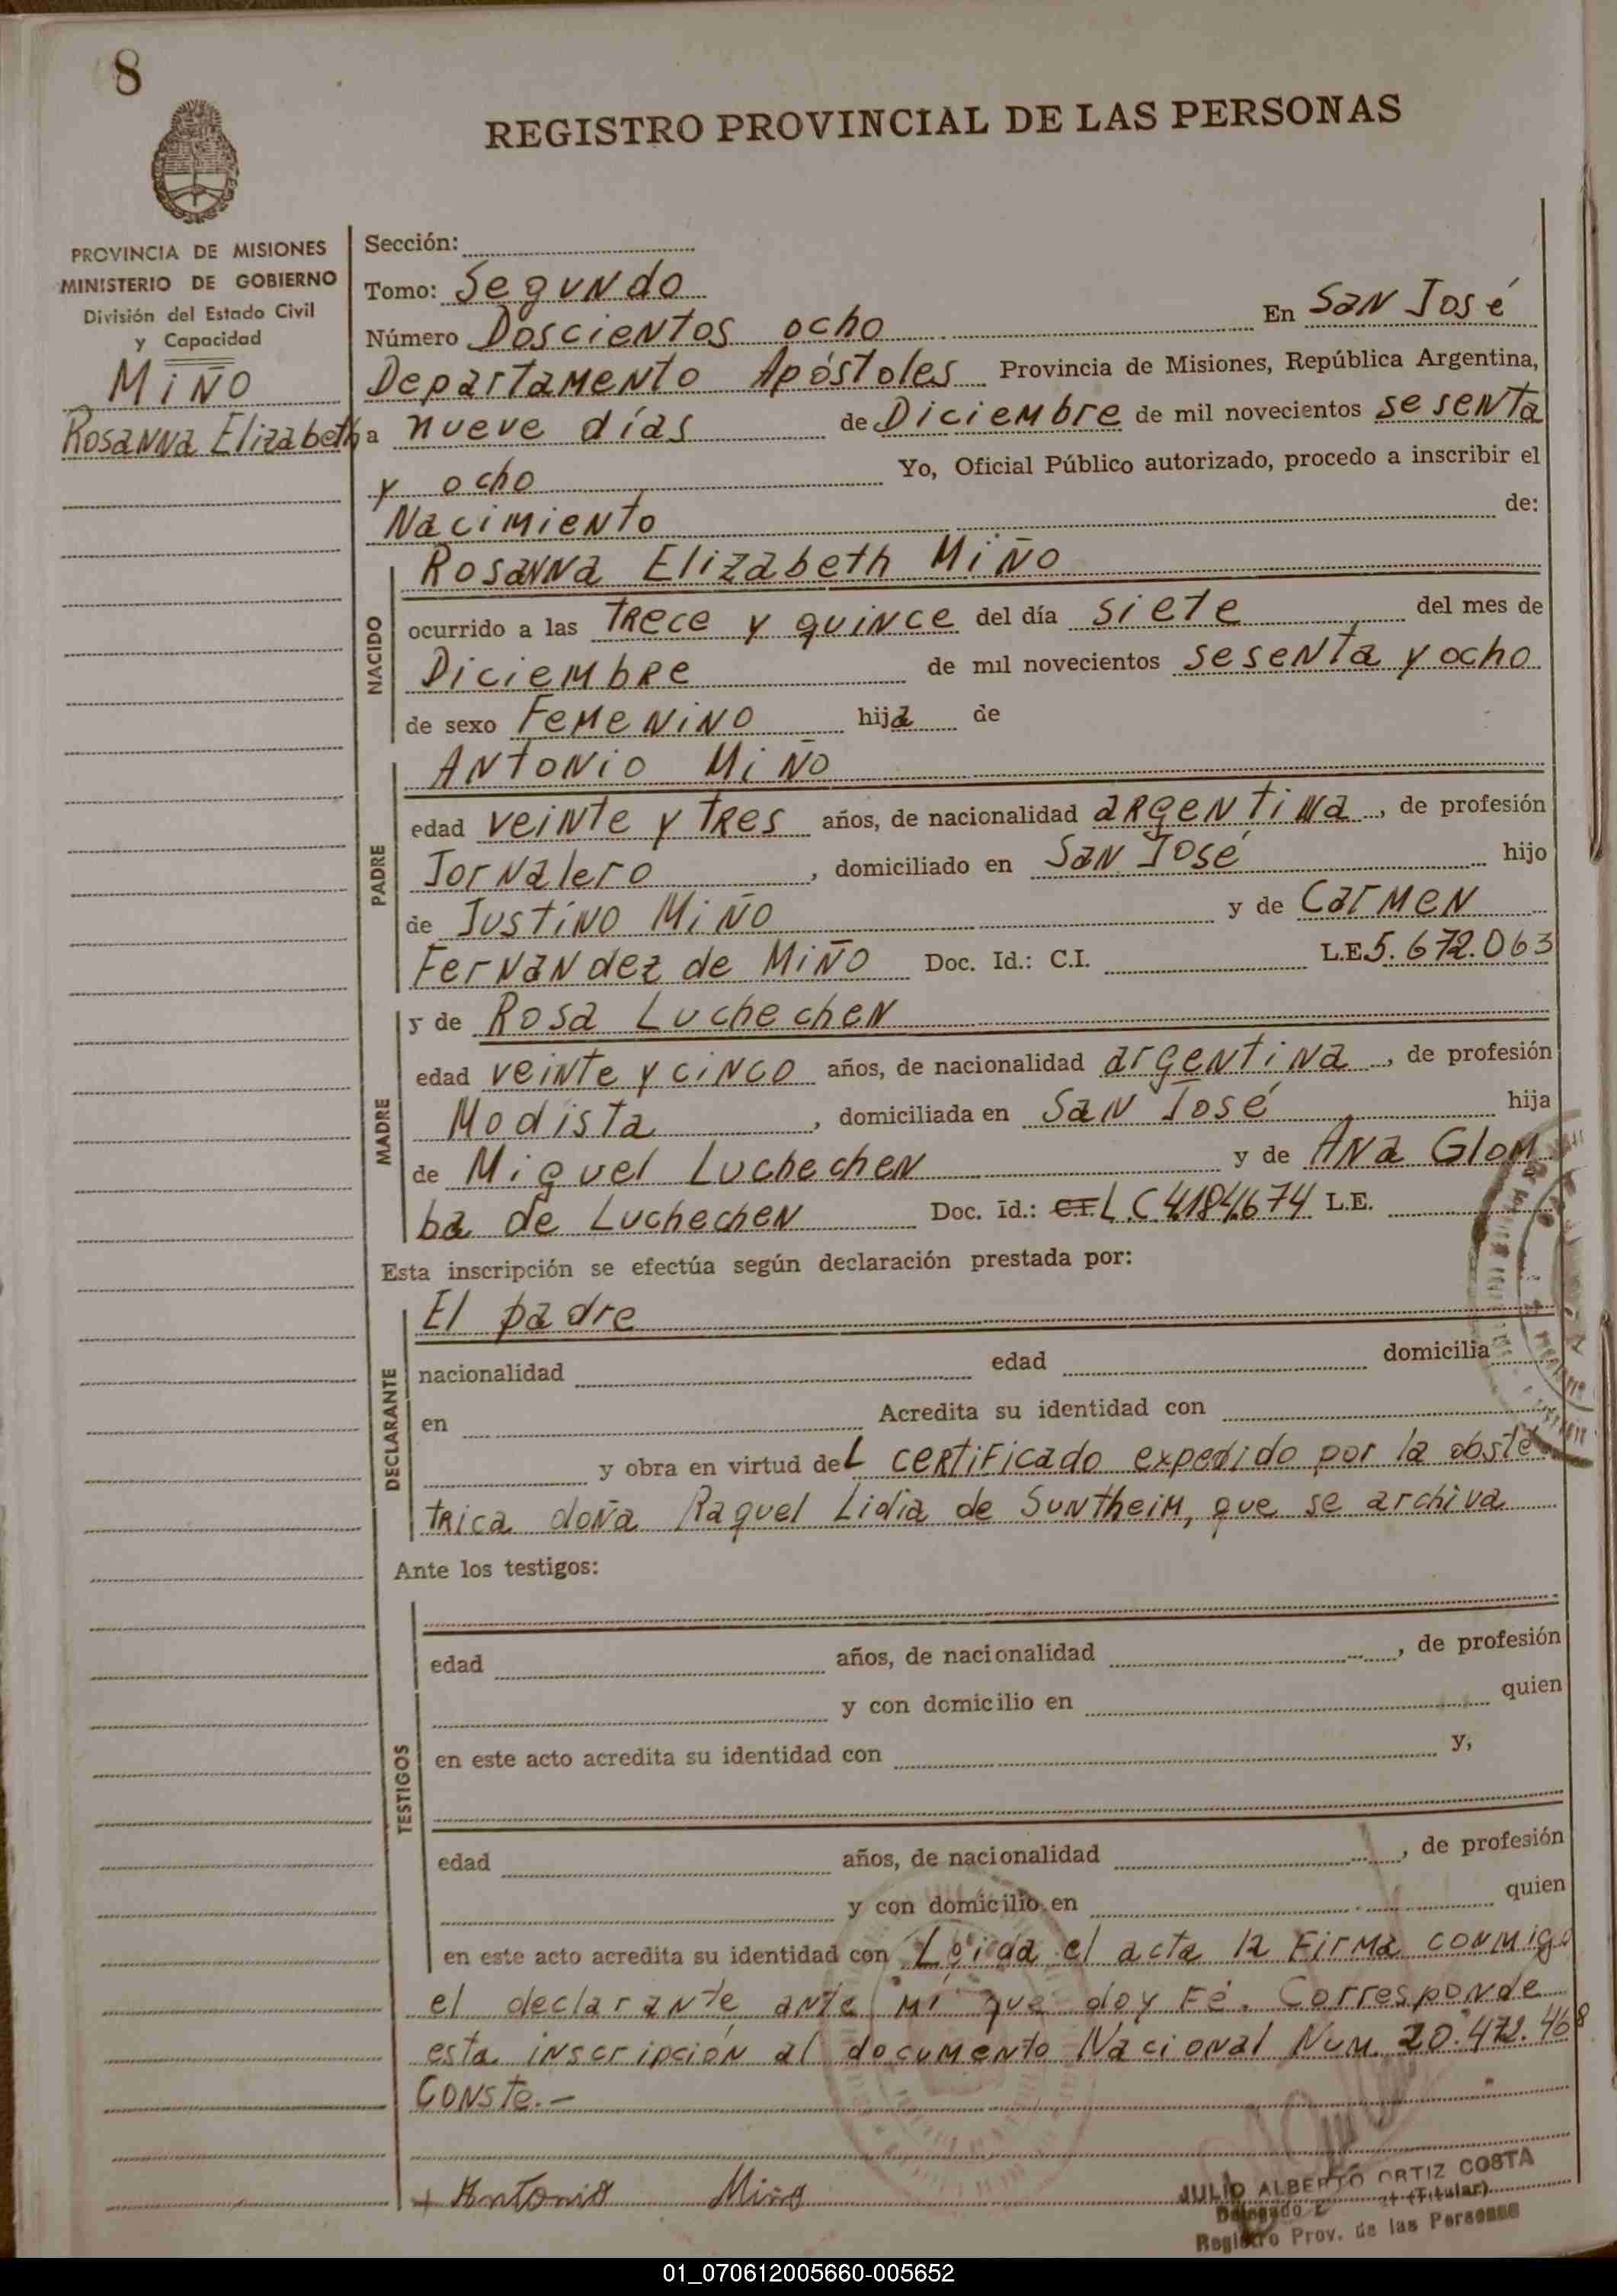 8
REGISTRO PROVINCIAL DE LAS PERSONAS
PROVINCIA DE MISIONES
MINISTERIO DE GOBIERNO
División del Estado Civil
y Capacidad
MIÑO
Rosanna Elizabeth
Sección:
Tomo: Segundo
Número Doscientos ocho En San José
Departamento Apóstoles Provincia de Misiones, República Argentina,
a nueve días de Diciembre de mil novecientos sesenta
y ocho Yo, Oficial Público autorizado, procedo a inscribir el
Nacimiento de:
NACIDO
Rosanna Elizabeth Miño
ocurrido a las trece y quince del día siete del mes de
Diciembre de mil novecientos sesenta y ocho
de sexo Femenino hija de
PADRE
Antonio Miño
edad veinte y tres años, de nacionalidad argentina, de profesión
Jornalero, domiciliado en San José hijo
de Justino Miño y de Carmen
Fernandez de Miño Doc. Id.: C.I. L.E 5.672.063
MADRE
y de Rosa Luchechen
edad veinte y cinco años, de nacionalidad argentina, de profesión
Modista, domiciliada en San José hija
de Miguel Luchechen y de Ana Glom
ba de Luchechen Doc. Id.: C.I. L.C 4.184.674 L.E.
Esta inscripción se efectúa según declaración prestada por:
DECLARANTE
El padre
nacionalidad edad domicilia
en Acredita su identidad con
y obra en virtud del certificado expedido por la obste
trica doña Raquel Lidia de Suntheim, que se archiva
Ante los testigos:
TESTIGOS
edad años, de nacionalidad , de profesión
y con domicilio en quien
en este acto acredita su identidad con y,
edad años, de nacionalidad , de profesión
y con domicilio en quien
en este acto acredita su identidad con Leida el acta la firma conmigo
el declarante ante mi que doy Fé. Corresponde
esta inscripción al documento Nacional Num. 20.472.468
Conste.-
+ Antonio Miño
JULIO ALBERTO ORTIZ COSTA
Delegado (Titular)
Registro Prov. de las Personas
01_070612005660-005652